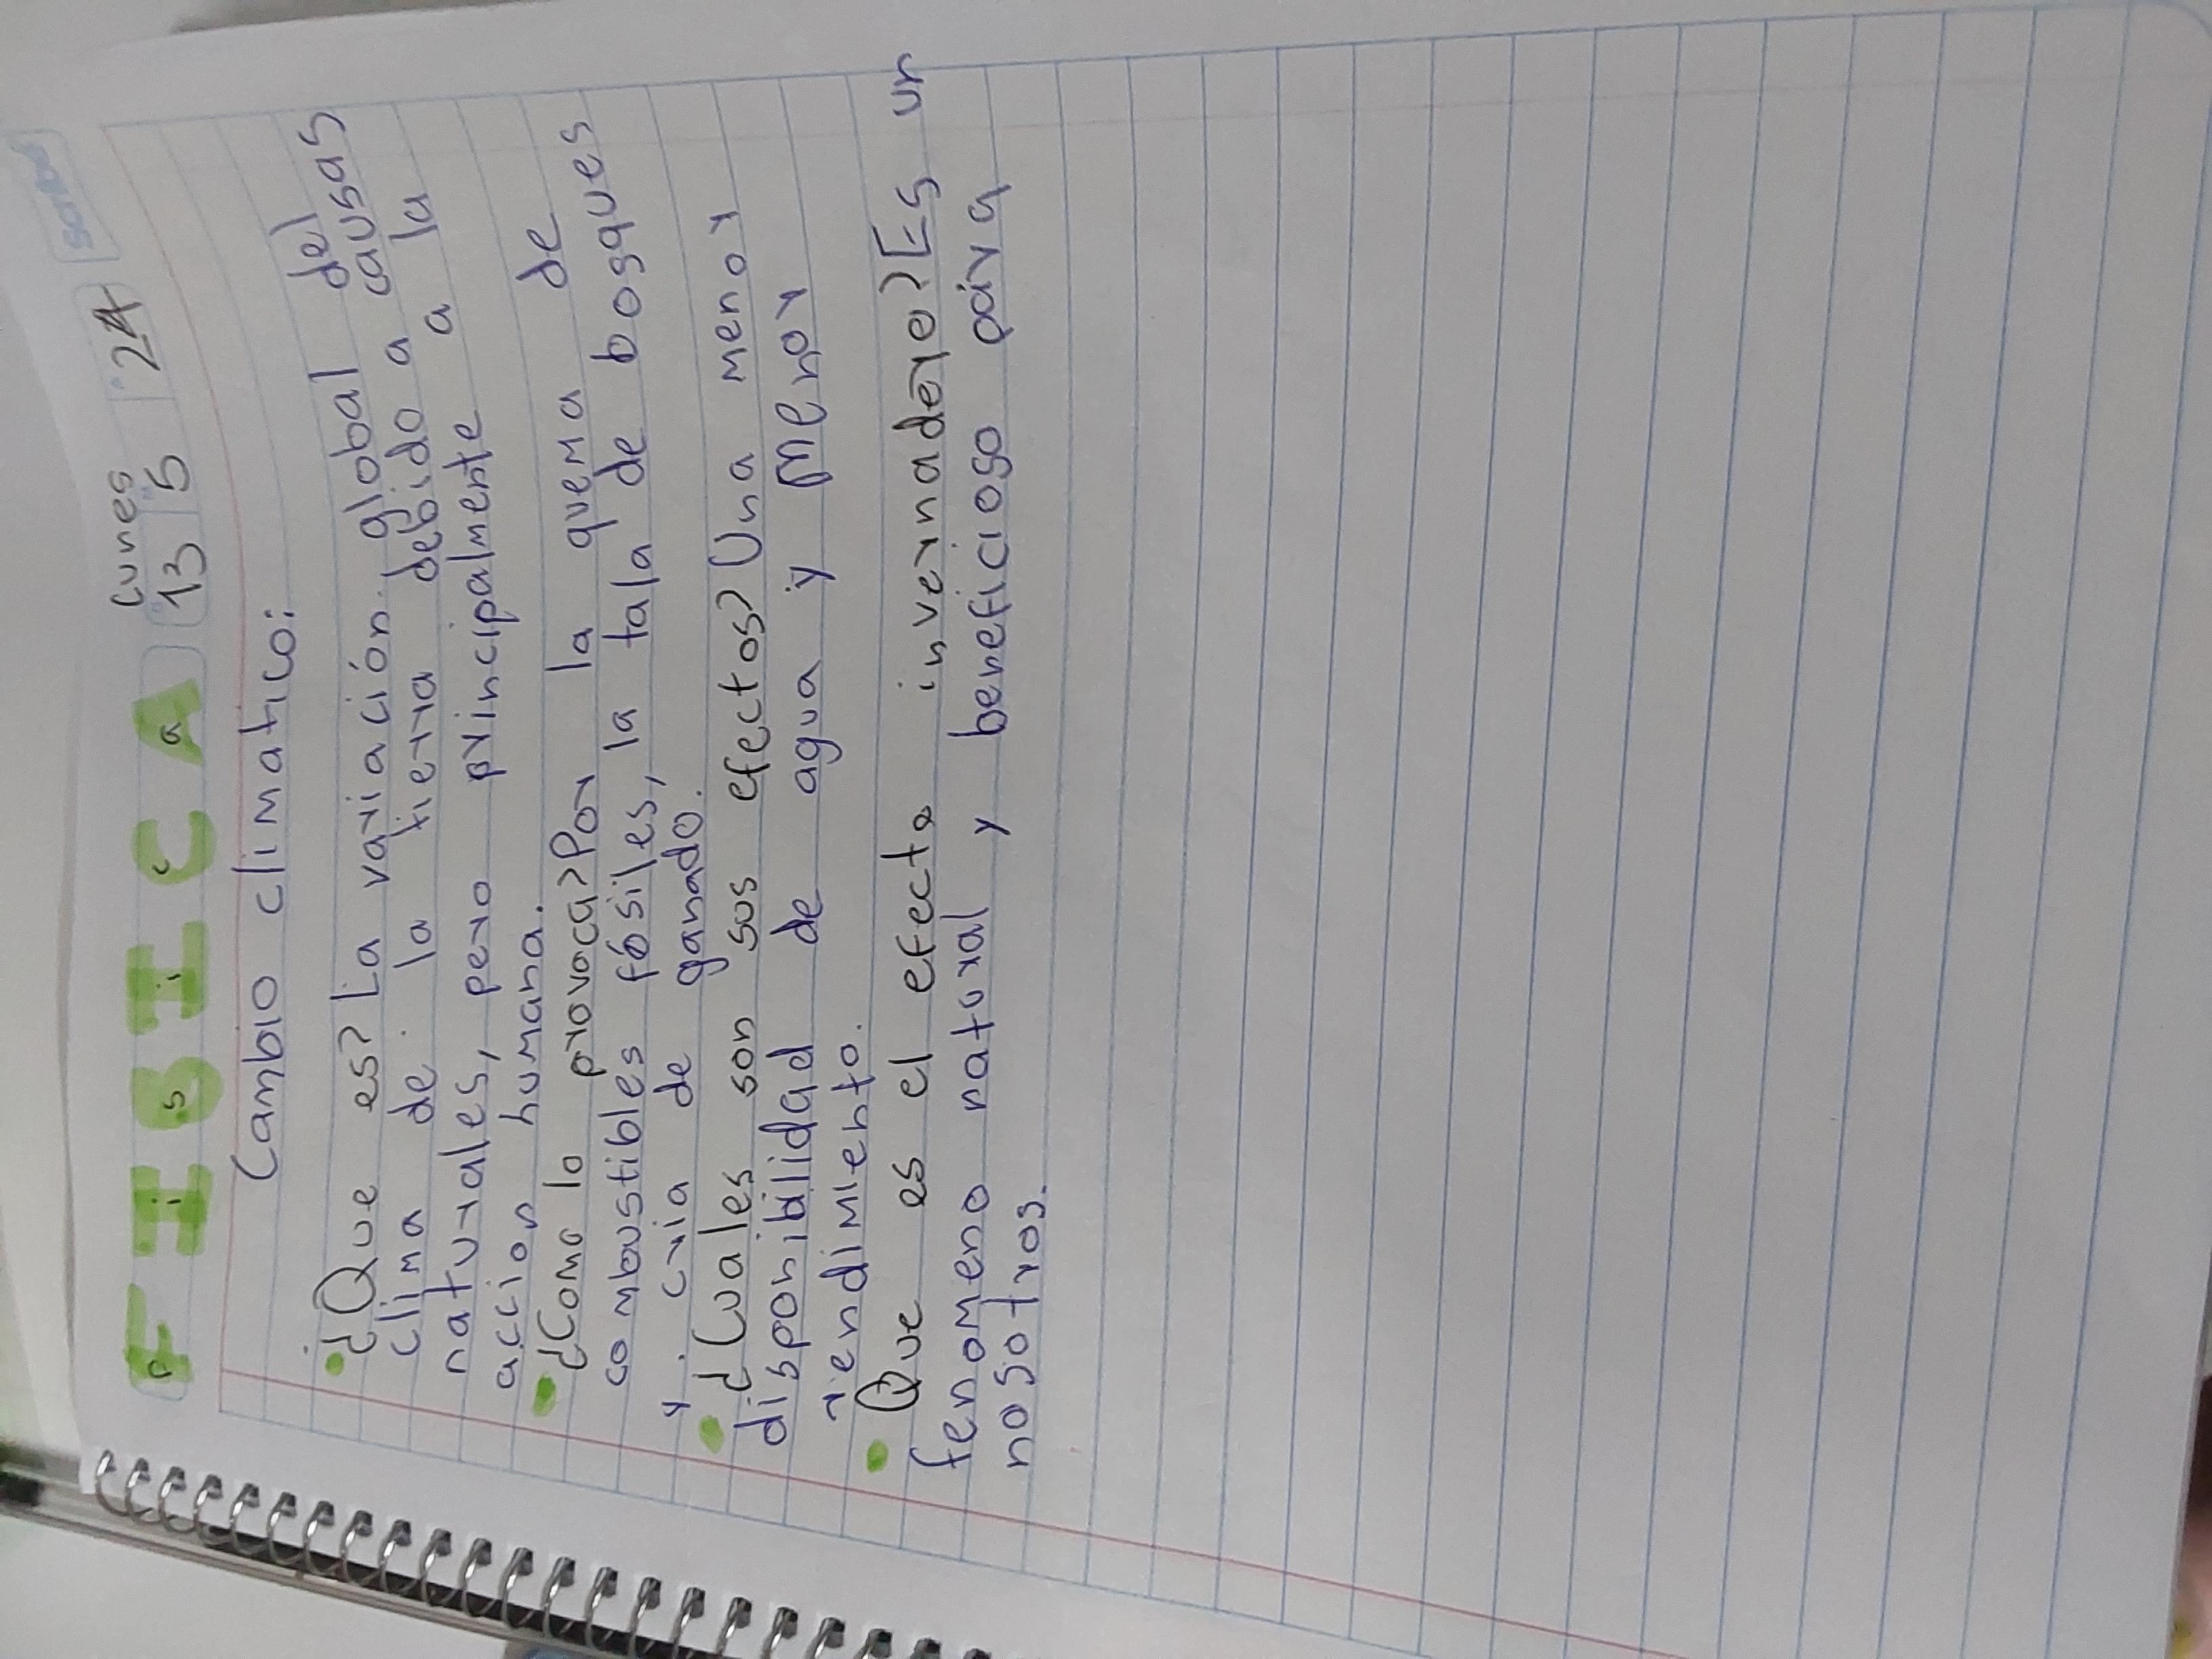 FISICA
Lunes
13 5 24
Scribe
Cambio climatico:
¿Que es? La variación global del
clima de la tierra debido a causas
naturales, pero principalmente a la
accion humana.
¿Como lo provoca? Por la quema de
combustibles fósiles, la tala de bosques
y cria de ganado.
¿Cuales son sus efectos? Una menor
disponibilidad de agua y menor
rendimiento.
Que es el efecto invernadero? Es un
fenomeno natural y beneficioso para
nosotros.